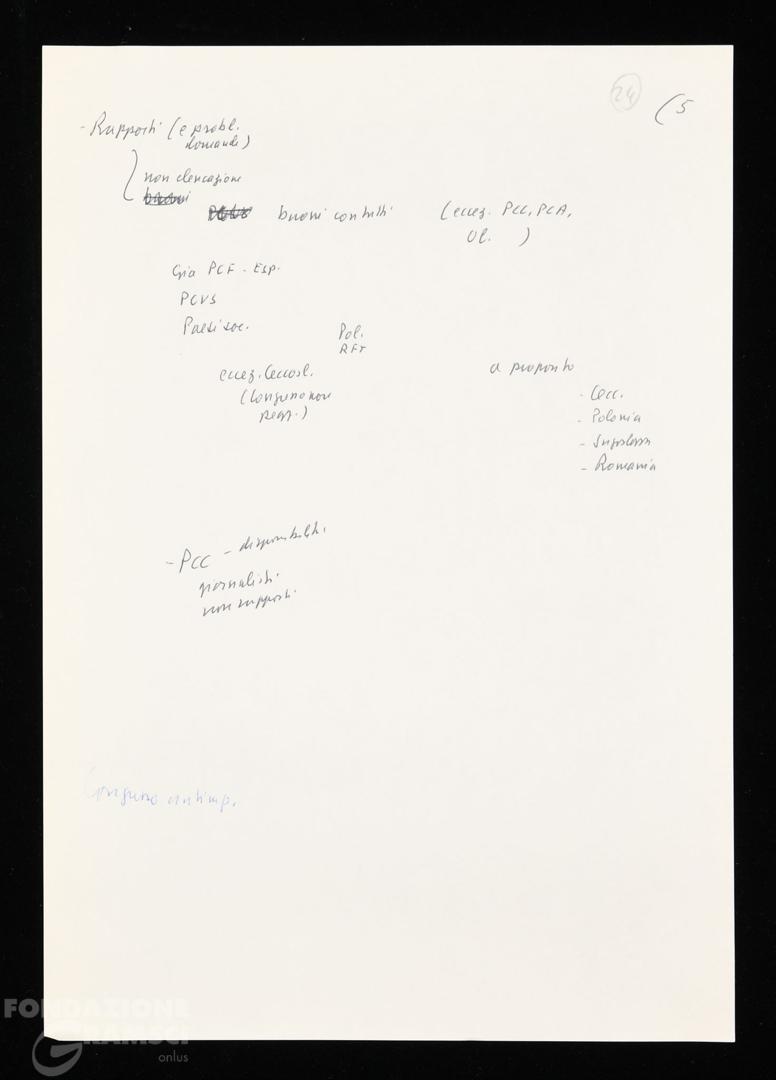 24
(5
- Rapporti (e probl.
domande)
non elencazione
buoni
buoni contatti (eccez. PCC, PCA,
Ol. )
Già PCF - Esp.
PCUS
Paesi soc.
Pol.
RFT
eccez. Cecosl.
(Congresso non
a proposito
- Cecc.
- Polonia
- Jugoslavia
- Romania
- PCC - disponibilità
giornalisti
non rapporti
Congresso antimp.
FONDAZIONE
GRAMSCI
onlus